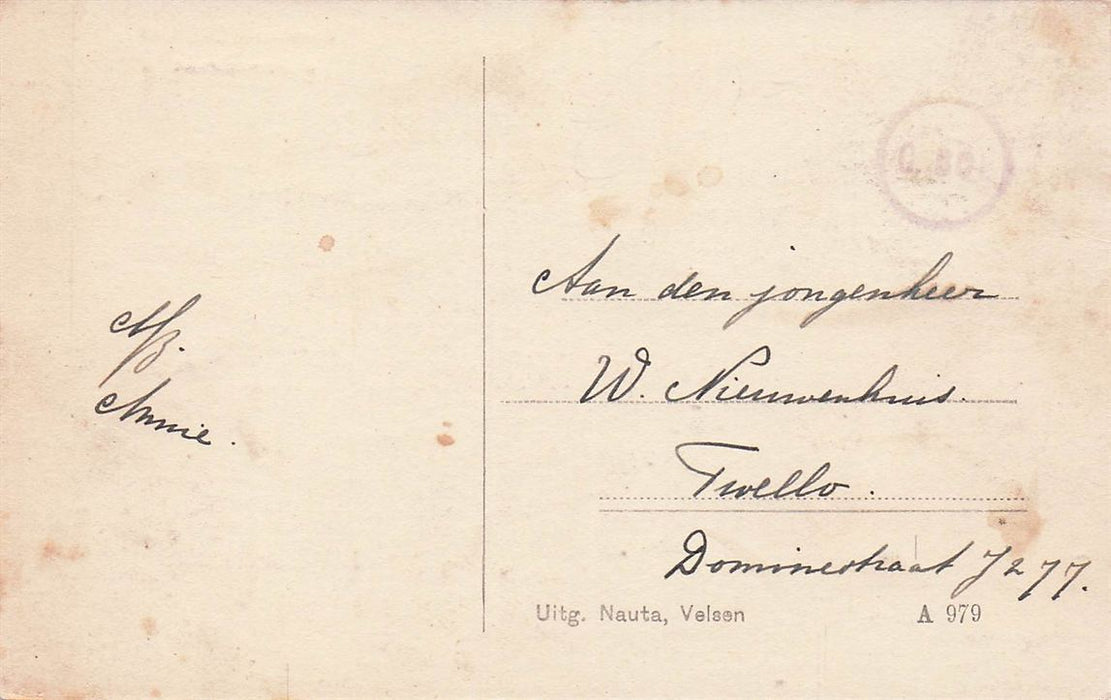 Afz.
Annie.
Aan den jongenheer
W. Nieuwenhuis.
Twello.
Dominestraat J 277.
Uitg. Nauta, Velsen
A 979